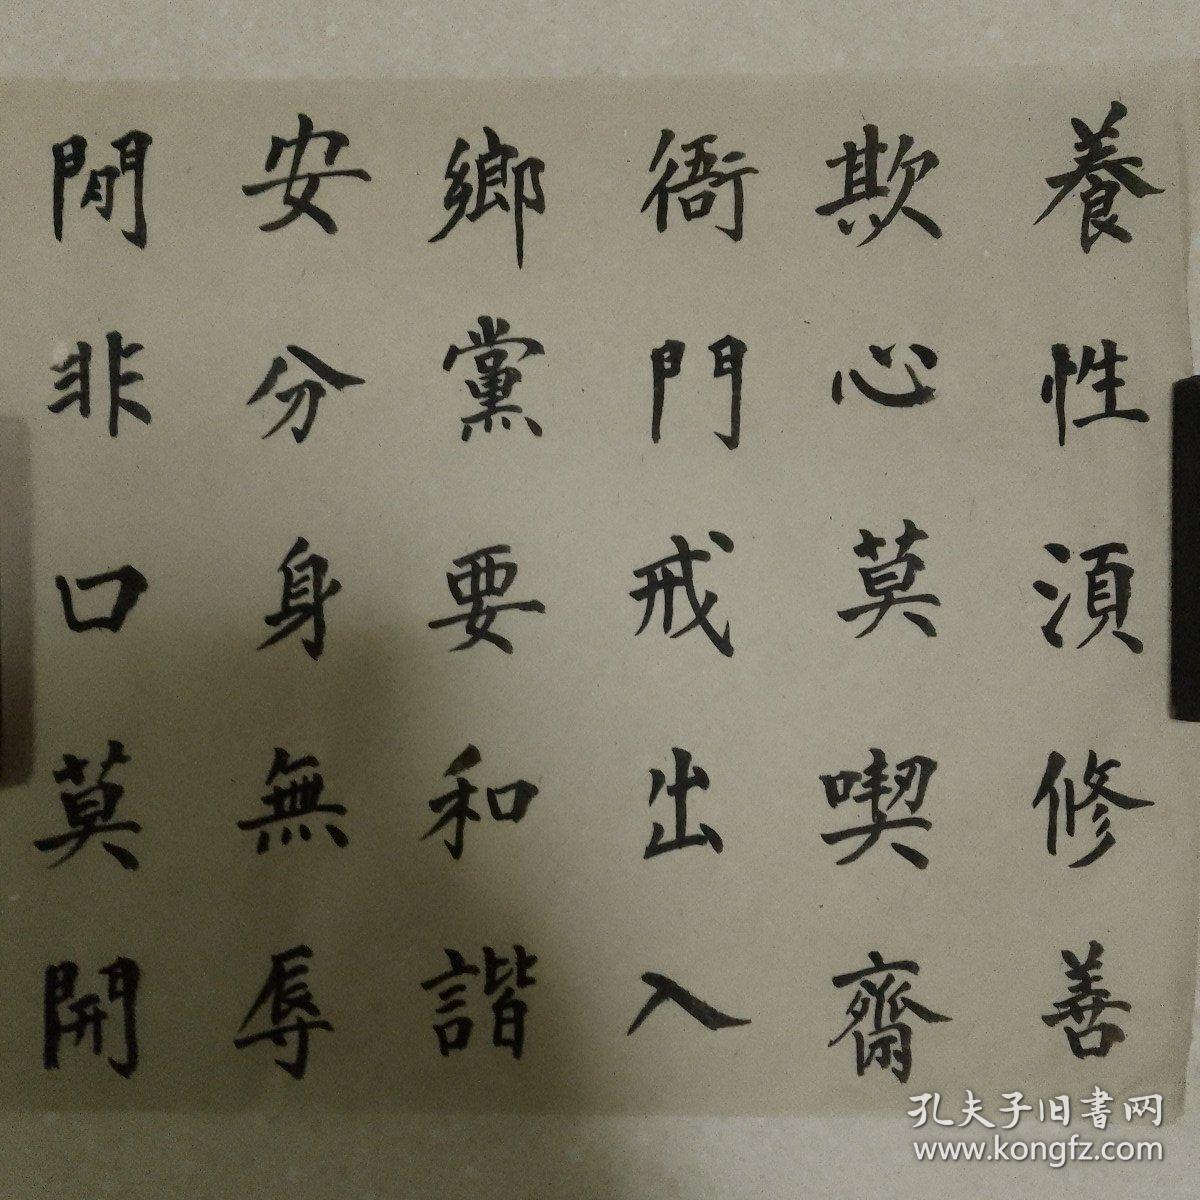 養性湏修善
欺心莫喫齋
衙門戒出入
鄉黨要和諧
安分身無辱
閒非口莫開
孔夫子旧書网
www.kongfz.com